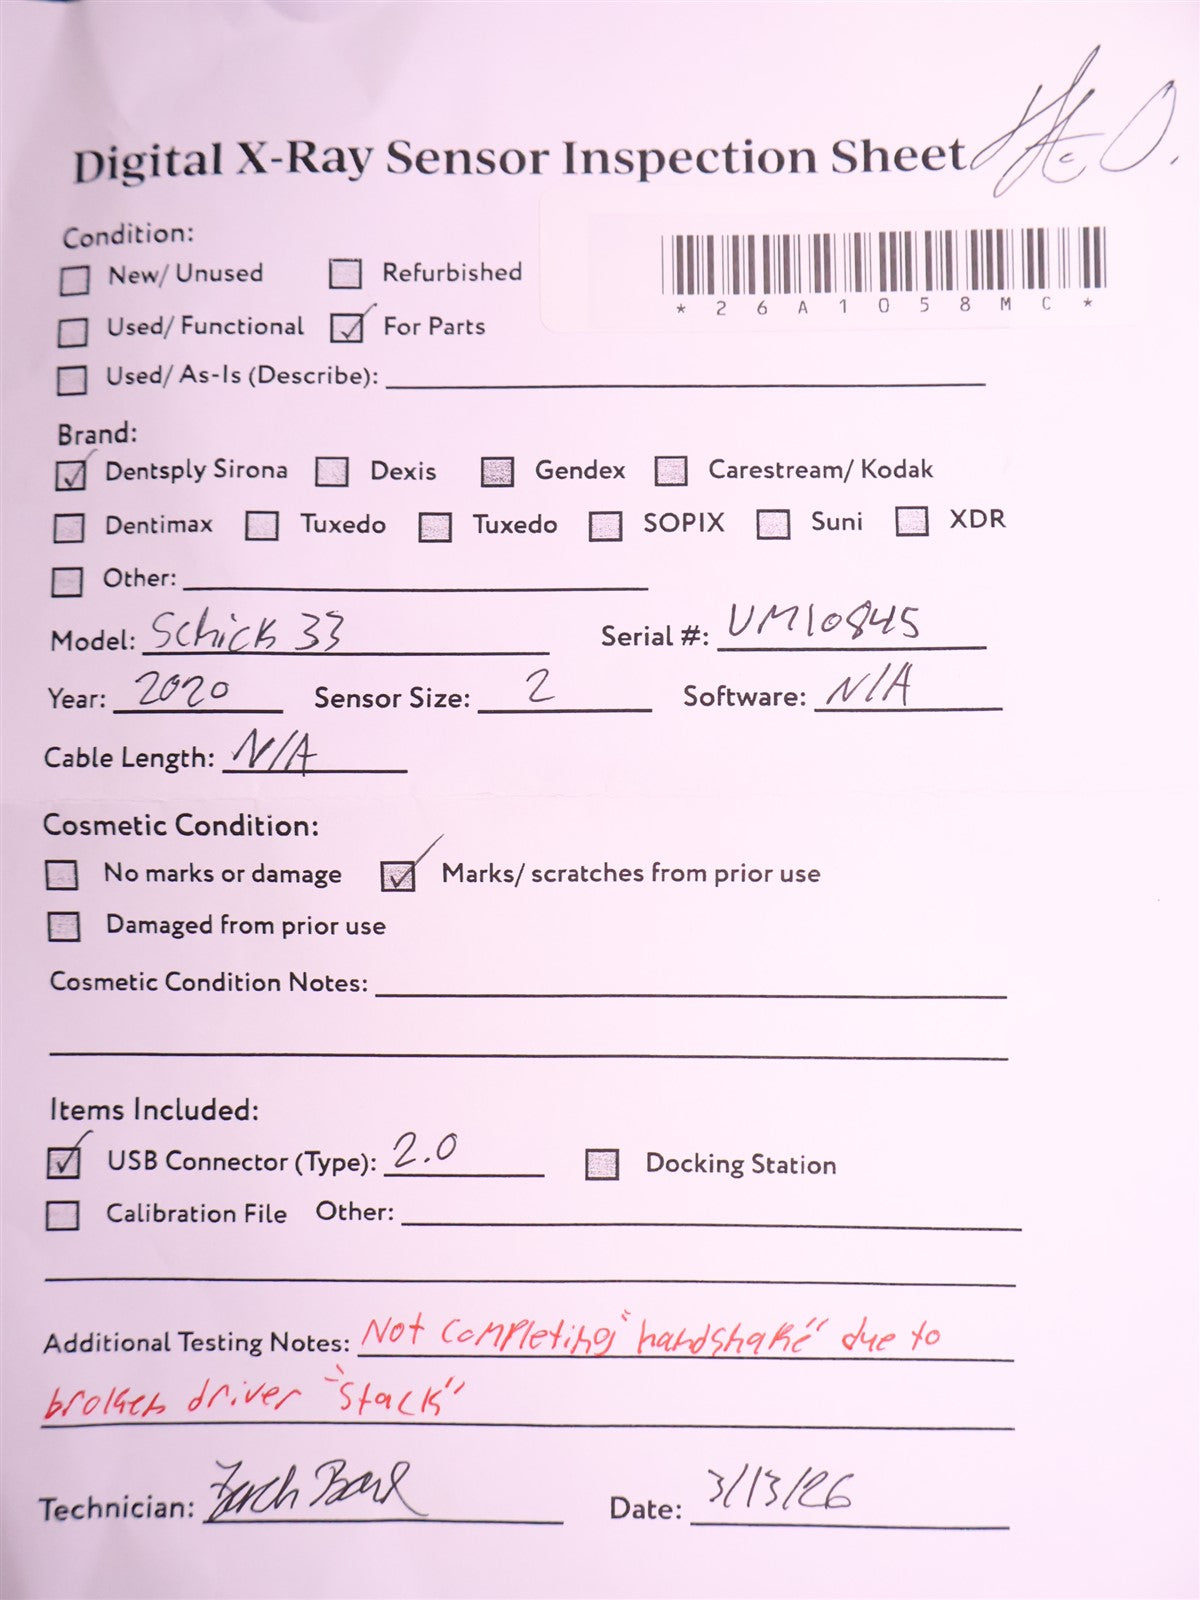 Digital X-Ray Sensor Inspection Sheet
Condition:
New/ Unused Refurbished
*26A1058MC*
Used/ Functional For Parts
Used/ As-Is (Describe):
Brand:
Dentsply Sirona Dexis Gendex Carestream/ Kodak
Dentimax Tuxedo Tuxedo SOPIX Suni XDR
Other:
Model: Schick 33 Serial #: UM10845
Year: 2020 Sensor Size: 2 Software: N/A
Cable Length: N/A
Cosmetic Condition:
No marks or damage Marks/ scratches from prior use
Damaged from prior use
Cosmetic Condition Notes:
Items Included:
USB Connector (Type): 2.0 Docking Station
Calibration File Other:
Additional Testing Notes: Not completing "handshake" due to
broken driver "stack"
Technician: Date: 3/13/26